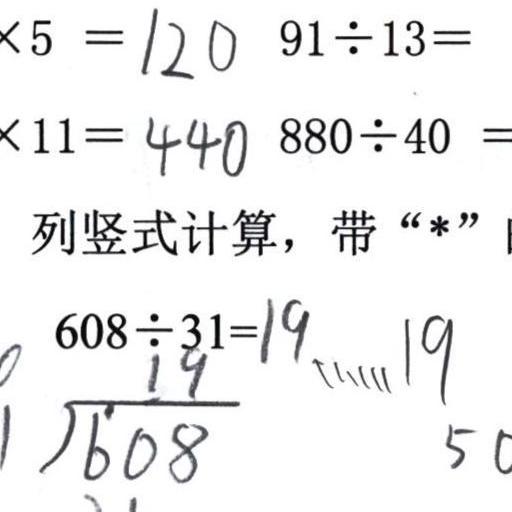 ×5 = 120 91÷13=
×11= 440 880÷40 =
列竖式计算，带“*”
608÷31=19……19
19
608
50